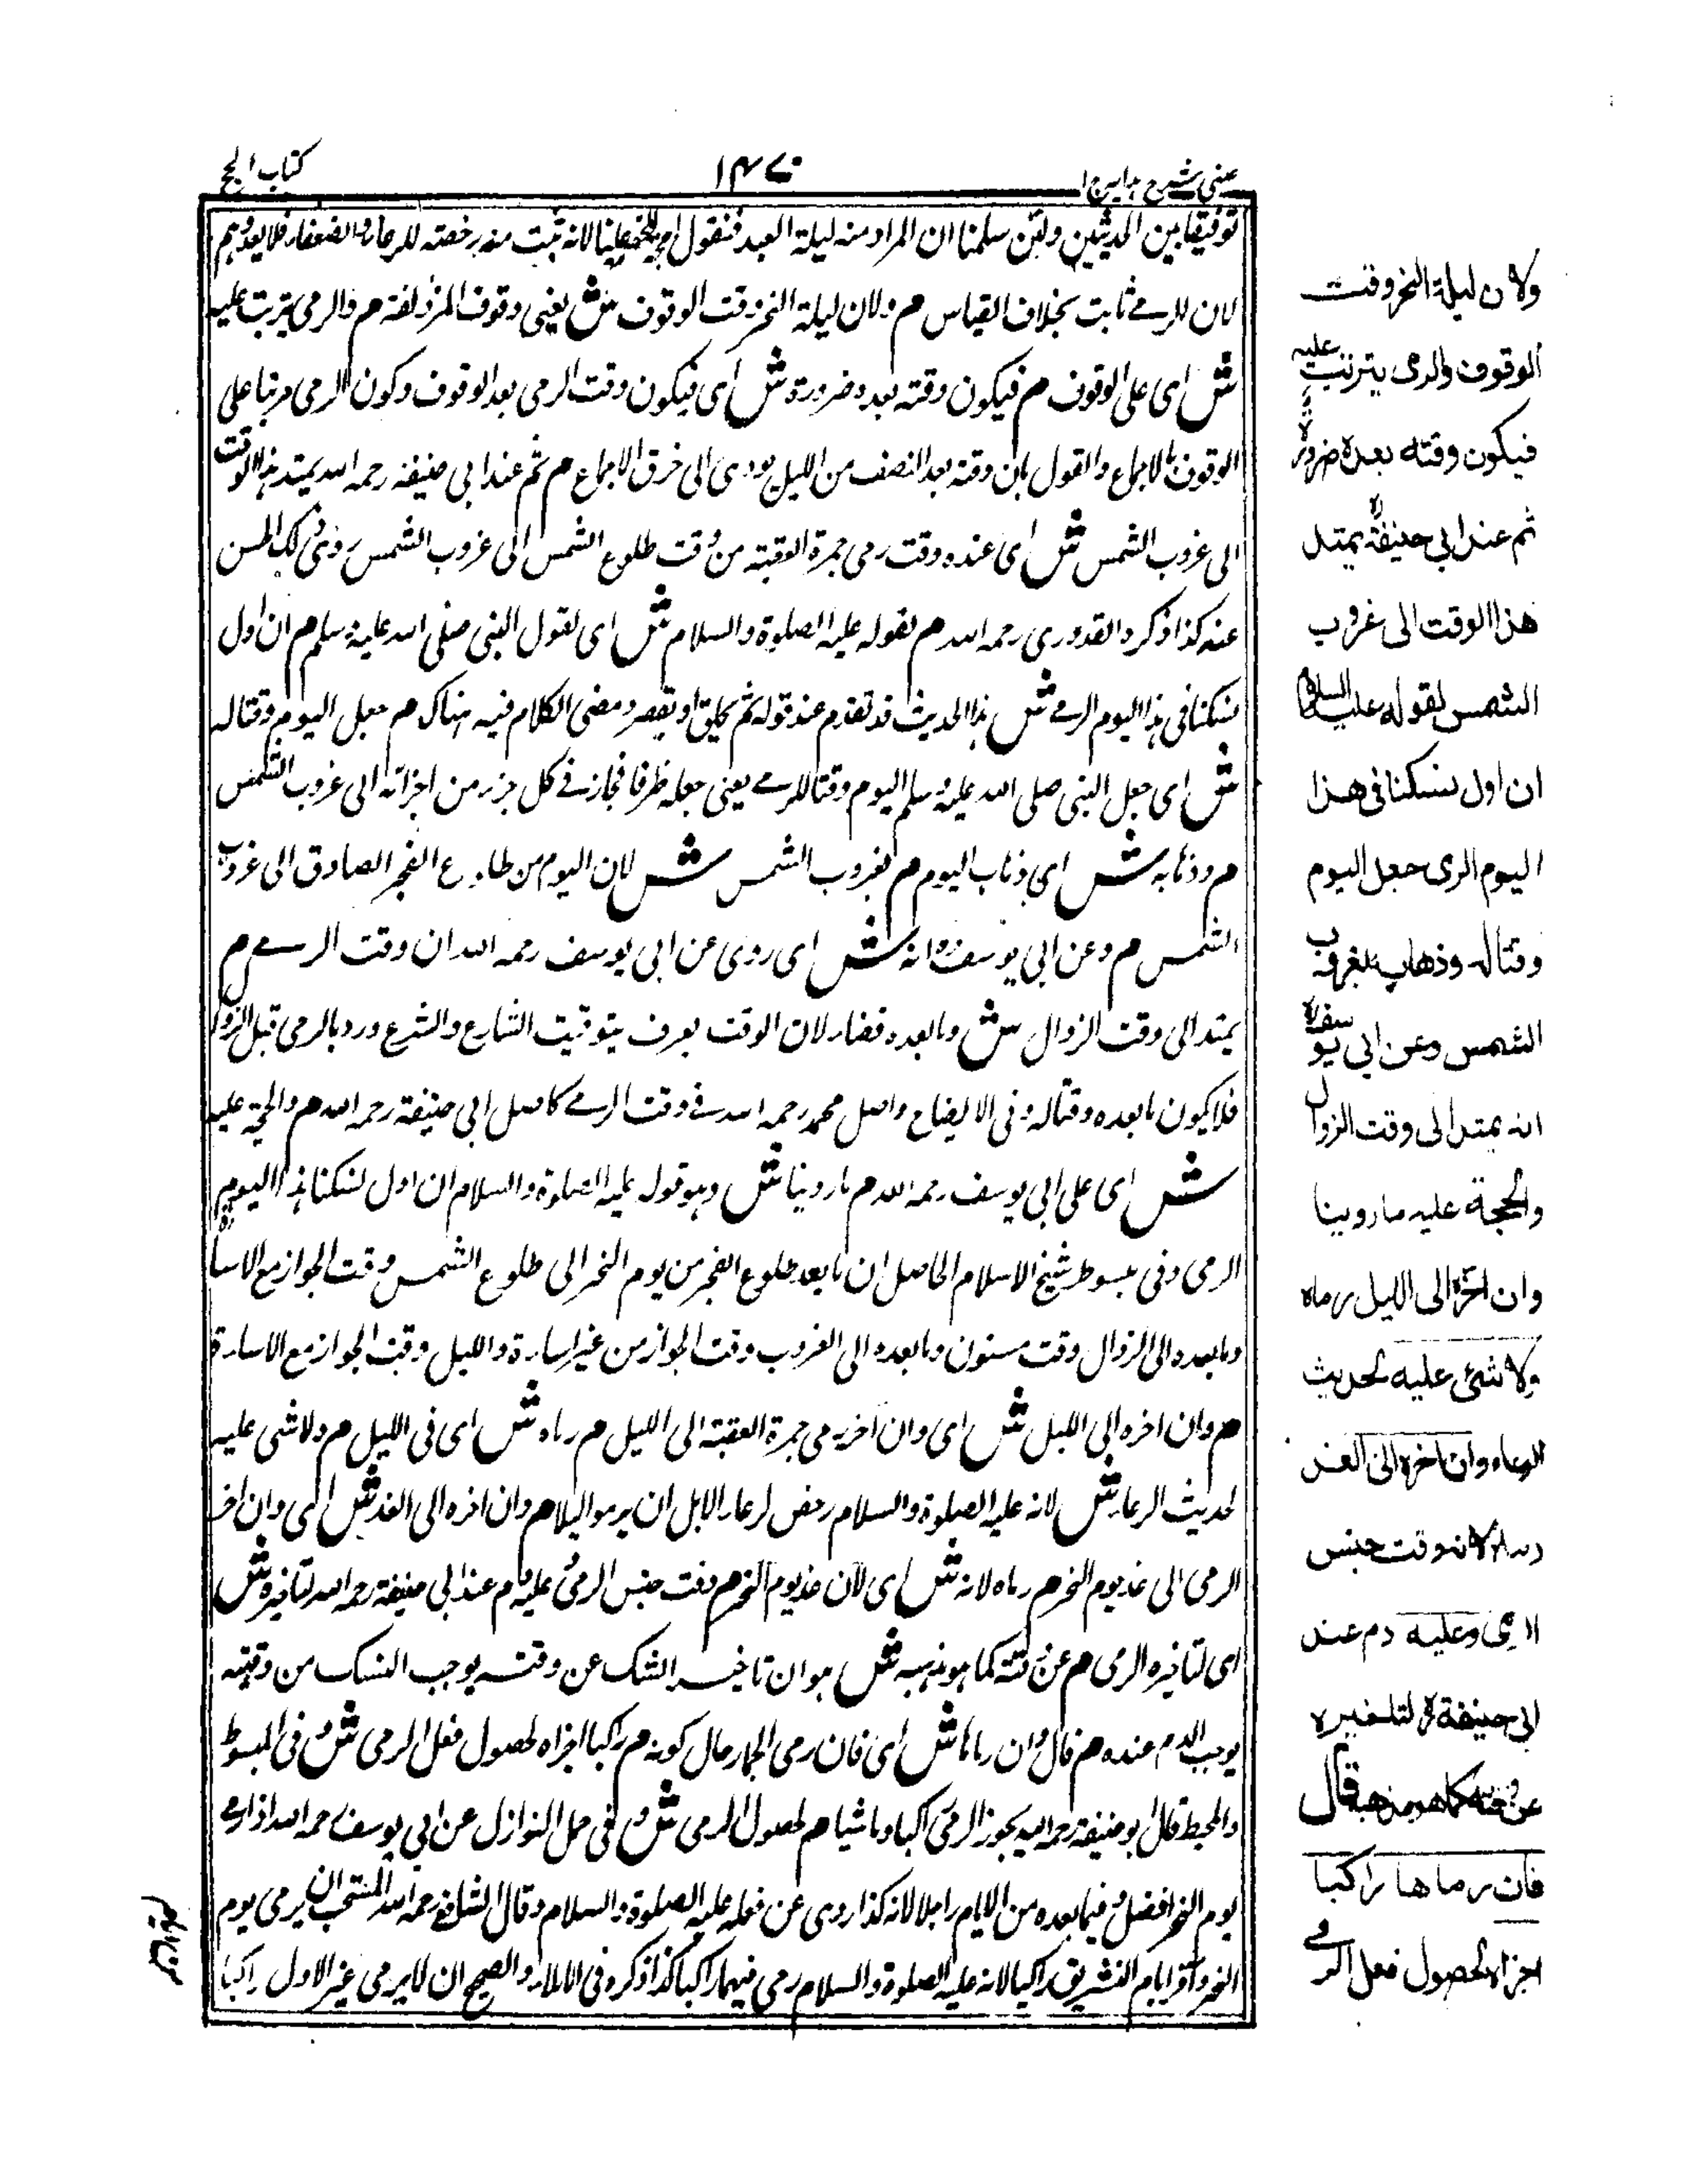 عینی شرح ہدایہ ج ۱
۱۴۷۰
کتاب الحج
توفيقا بين الحديثين ولئن سلمنا ان المراد منه ليلة العيد فنقول لانه ثبت منه رخصته للرعاء والضعفاء فلا يعدوهم
لان الرمي ثابت بخلاف القياس م ولان ليلة النحر وقت الوقوف ش يعنى وقوف المزدلفة م والرمى يترتب عليه
ش اى على الوقوف م فيكون وقته بعده ضرورة ش اى فيكون وقت الرمى بعد الوقوف وكون الرمى مرتبا على
الوقوف بالاجماع والقول بان وقته بعد النصف من الليل يودى الى خرق الاجماع م ثم عند ابى حنيفه رحمه الله يمتد هذا الوقت
الى غروب الشمس ش اى عنده وقت رمى جمرة العقبة من وقت طلوع الشمس الى غروب الشمس روى ذلك الحسن
عنه كذا ذكره القدورى رحمه الله م لقوله عليه الصلوة والسلام ش اى لقول النبى صلى الله عليه وسلم م ان اول
نسكنا فى هذا اليوم الرمے ش هذا الحديث قد تقدم عند قوله ثم يحلق او يقصر ومضى الكلام فيه هناك م جعل اليوم وقتا له
ش اى جعل النبى صلى الله عليه وسلم اليوم وقتا للرمے يعنى جعله ظرفا فجاز فے كل جزء من اجزائه الى غروب الشمس
م وذهابه ش اى ذهاب اليوم م بغروب الشمس ش لان اليوم من طلوع الفجر الصادق الى غروب
الشمس م وعن ابى يوسف رہ انه ش اى روى عن ابى يوسف رحمه الله ان وقت الرمے م
يمتد الى وقت الزوال ش وما بعده قضاء لان الوقت يعرف بتوقيت الشارع والشرع ورد بالرمى قبل الزوال
فلا يكون ما بعده وقتا له وفى الايضاح واصل محمد رحمه الله فے وقت الرمے كاصل ابى حنيفة رحمه الله م والحجة عليه
ش اى على ابى يوسف رحمه الله م ما روينا ش وهو قوله عليه الصلوة والسلام ان اول نسكنا هذا اليوم
الرمى وفى مبسوط شيخ الاسلام الحاصل ان ما بعد طلوع الفجر من يوم النحر الى طلوع الشمس وقت الجواز مع الاساءة
وما بعده الى الزوال وقت مسنون وما بعده الى الغروب وقت الجواز من غير اساءة والليل وقت الجواز مع الاساءة
م وان اخره الى الليل ش اى وان اخر رمى جمرة العقبة الى الليل م رماه ش اى فى الليل م ولا شى عليه
لحديث الرعاء ش لانه عليه الصلوة والسلام رخص لرعاء الابل ان يرموا ليلا م وان اخره الى الغد ش اى وان اخر
الرمى الى غد يوم النحر م رماه لانه ش اى لان غد يوم النحر م وقت جنس الرمى وعليه دم عند ابى حنيفة رحمه الله لتاخيره ش
اى لتاخيره الرمى م عن وقته كما هو مذهبه ش هو ان تاخير النسك عن وقته يوجب النسك من وقته
يوجب الدم عنده م قال وان رماها ش اى فان رمى الجمار حال كونه م راكبا اجزاه لحصول فعل الرمى ش وفى المبسوط
والمحيط قال ابو حنيفة رحمه الله يجوز الرمى راكبا وماشيا م لحصول الرمى ش وفى النوازل عن ابى يوسف رحمه الله اذا رمے
يوم النحر افضل وفيما بعده من الايام راجلا لانه كذا روى عن فعله عليه الصلوة والسلام وقال الشافعى رحمه الله المستحب ان يرمى يوم
النحر وآخر ايام التشريق راكبا لانه عليه الصلوة والسلام رمى فيهما راكبا كذا ذكره فى الاملاء والصحيح ان لا يرمى غير الاول راكبا
ولان ليلة النحر وقت
الوقوف والرمى يترتب عليه
فيكون وقته بعده ضرورة
ثم عند ابى حنيفة رہ يمتد
هذا الوقت الى غروب
الشمس لقوله عليه السلام
ان اول نسكنا فى هذا
اليوم الرمى جعل اليوم
وقتا له وذهابه بغروب
الشمس وعن ابى يوسف رہ
انه يمتد الى وقت الزوال
والحجة عليه ما روينا
وان اخره الى الليل رماه
ولا شئ عليه لحديث
الرعاء وان اخره الى الغد
رماه لانه وقت جنس
الرمى وعليه دم عند
ابى حنيفة رہ لتاخيره
عن وقته كما هو مذهبه قال
فان رماها راكبا
اجزاه لحصول فعل الرمى